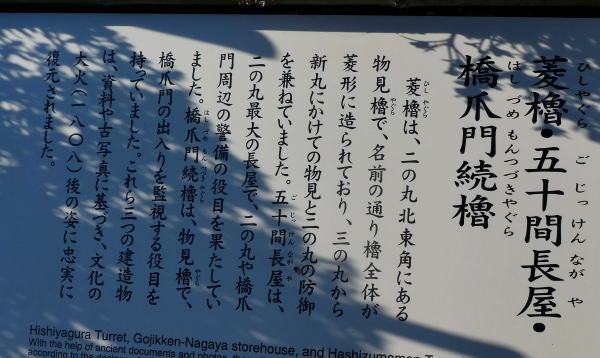 菱櫓・五十間長屋・
ひしやぐら ご じっ けん なが や
橋爪門続櫓
はし づめ もんつづきやぐら
菱櫓は、二の丸北東角にある
ひし やぐら
物見櫓で、名前の通り櫓全体が
やぐら
菱形に造られており、三の丸から
新丸にかけての物見と二の丸の防御
を兼ねていました。五十間長屋は、
ご じっ けん なが や
二の丸最大の長屋で、二の丸や橋爪
門周辺の警備の役目を果たしてい
ました。橋爪門続櫓は、物見櫓で、
はし づめ もん つづき やぐら やぐら
橋爪門の出入りを監視する役目を
持っていました。これら三つの建造物
は、資料や古写真に基づき、文化の
大火(一八〇八)後の姿に忠実に
復元されました。
Hishiyagura Turret, Gojikken-Nagaya storehouse, and Hashizumemon
With the help of ancient documents and photos,
according to the